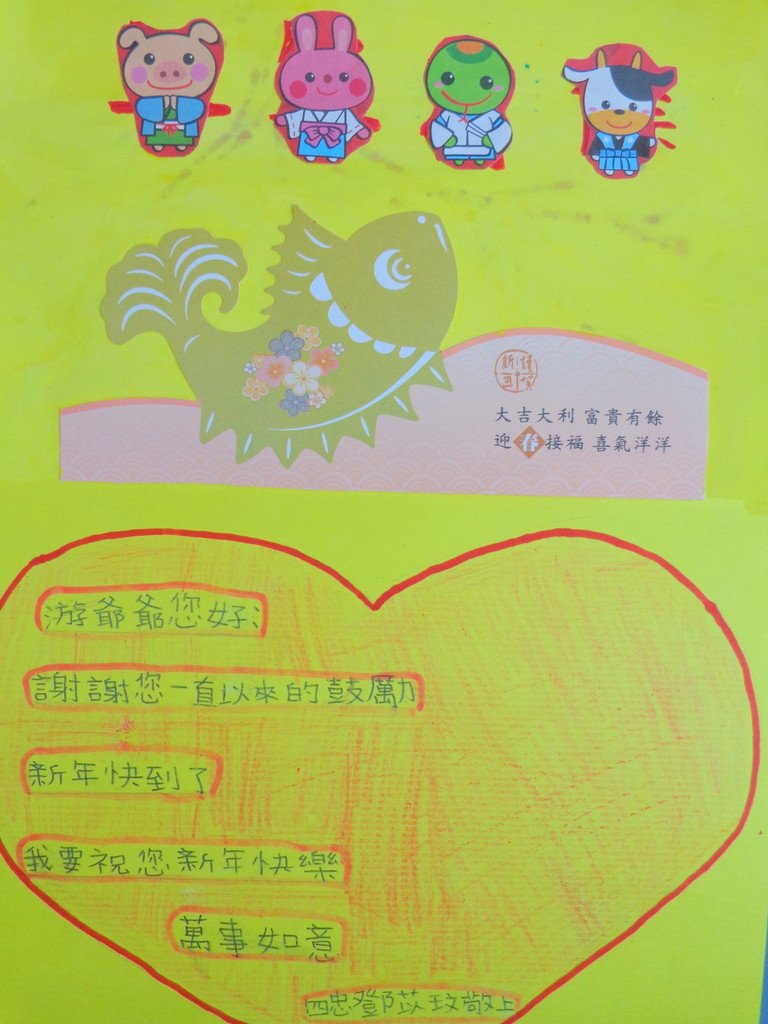 大吉大利 富貴有餘
迎春接福 喜氣洋洋
游爺爺您好：
謝謝您一直以來的鼓勵
新年快到了
我要祝您新年快樂
萬事如意
四忠鄧苡玟敬上